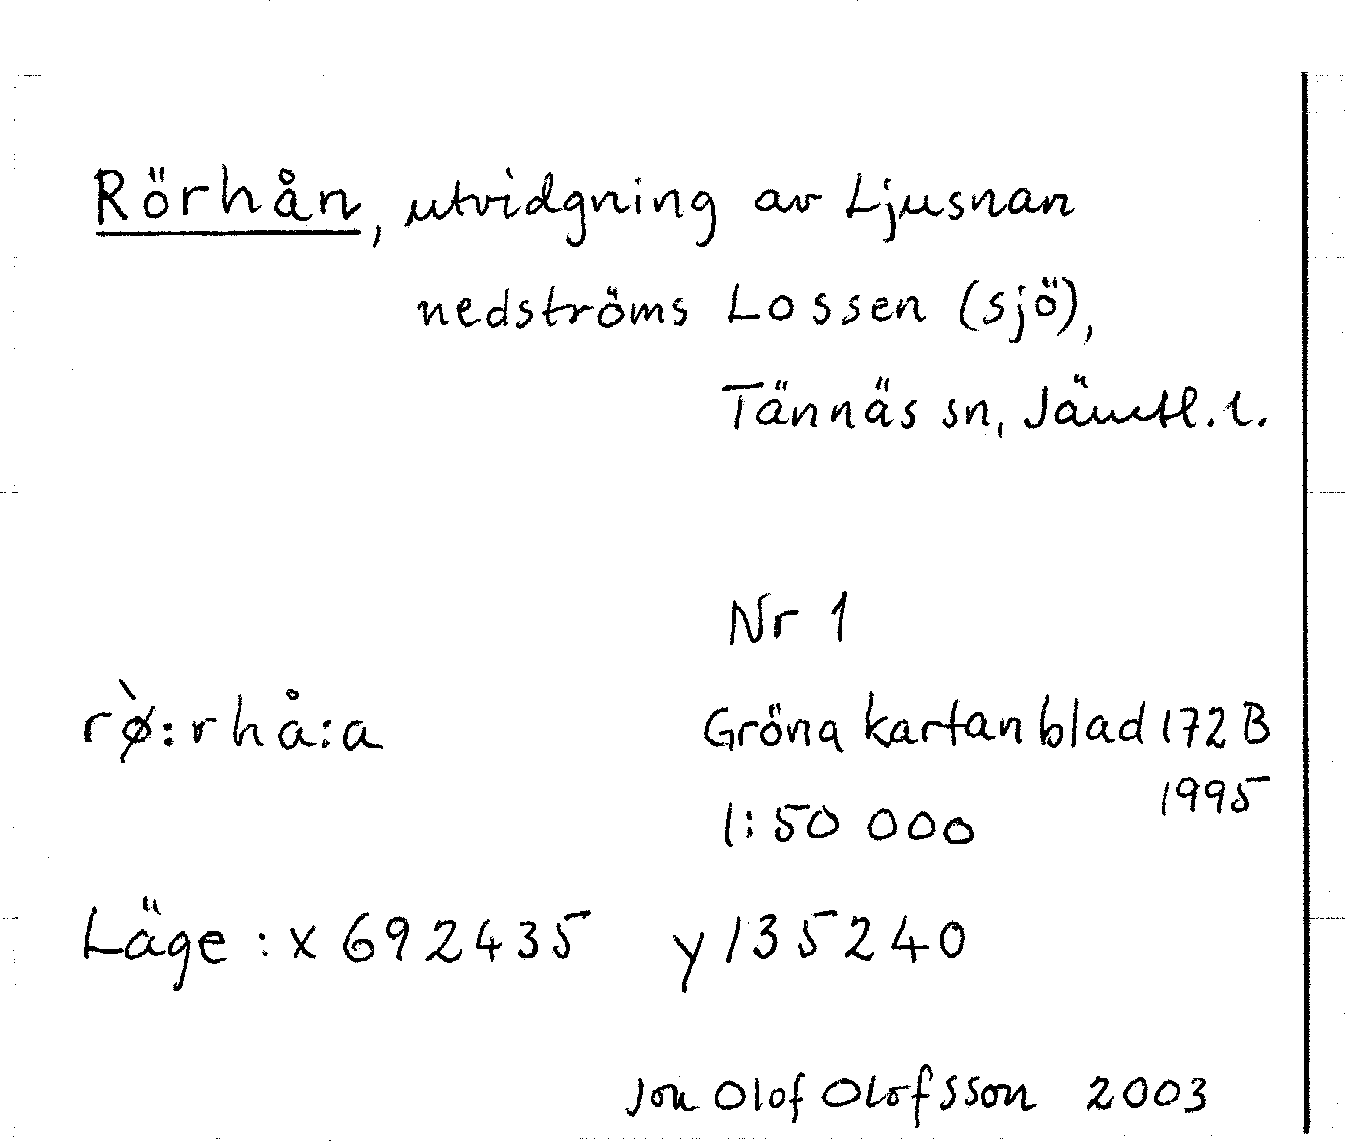 Rörhån, utvidgning av Ljusnan
nedströms Lossen (sjö),
Tännäs sn, Jämtl. l.
Nr 1
rø̀:rhå:a
Gröna kartan blad 172 B
1995
1:50 000
Läge : x 692435 y 135240
Jon Olof Olofsson 2003